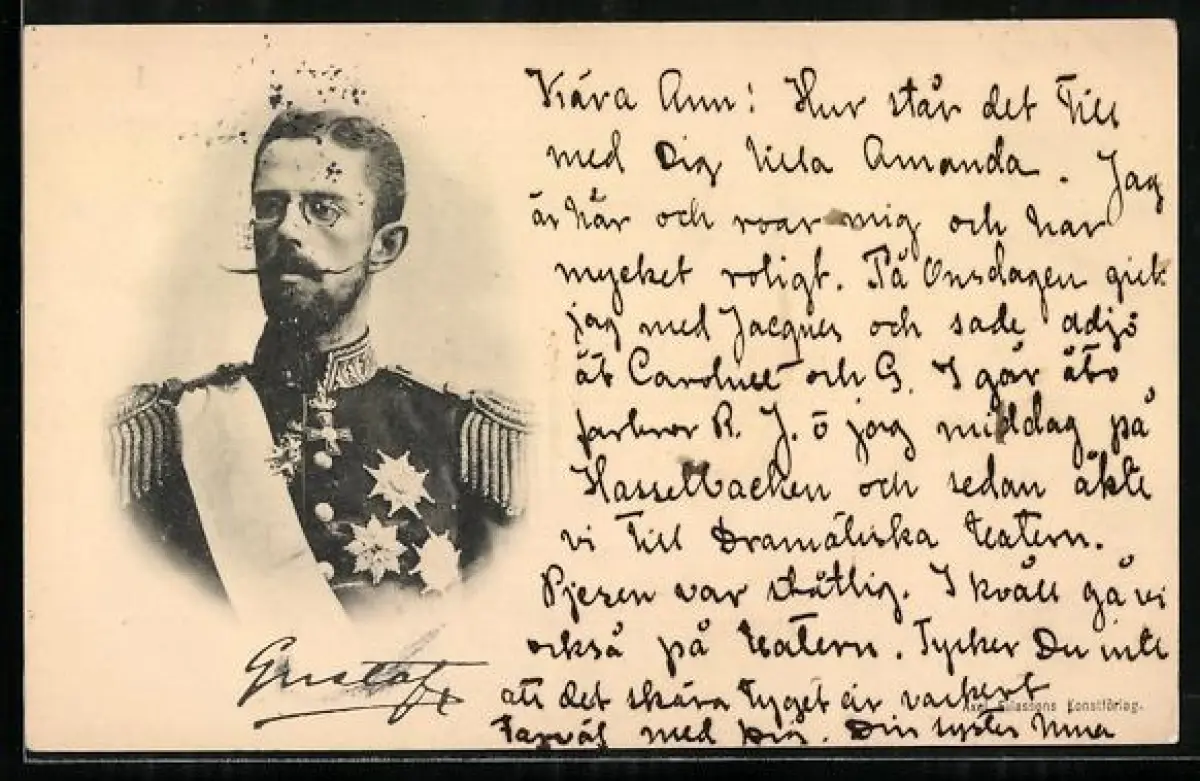 Kära Ann! Hur står det till
med Dig lilla Amanda. Jag
är här och roar mig och har
mycket roligt. På Onsdagen gick
jag med Jacques och sade adjö
åt och G. I går åto
farbror R. J. o jag middag på
Hasselbacken och sedan åkte
vi till Dramatiska teatern.
Pjesen var ståtlig. I kväll gå vi
också på teatern. Tycker Du inte
att det skära tyget är vackert
Farväl med Dig. Din syster
Gustaf
Konstförlag.